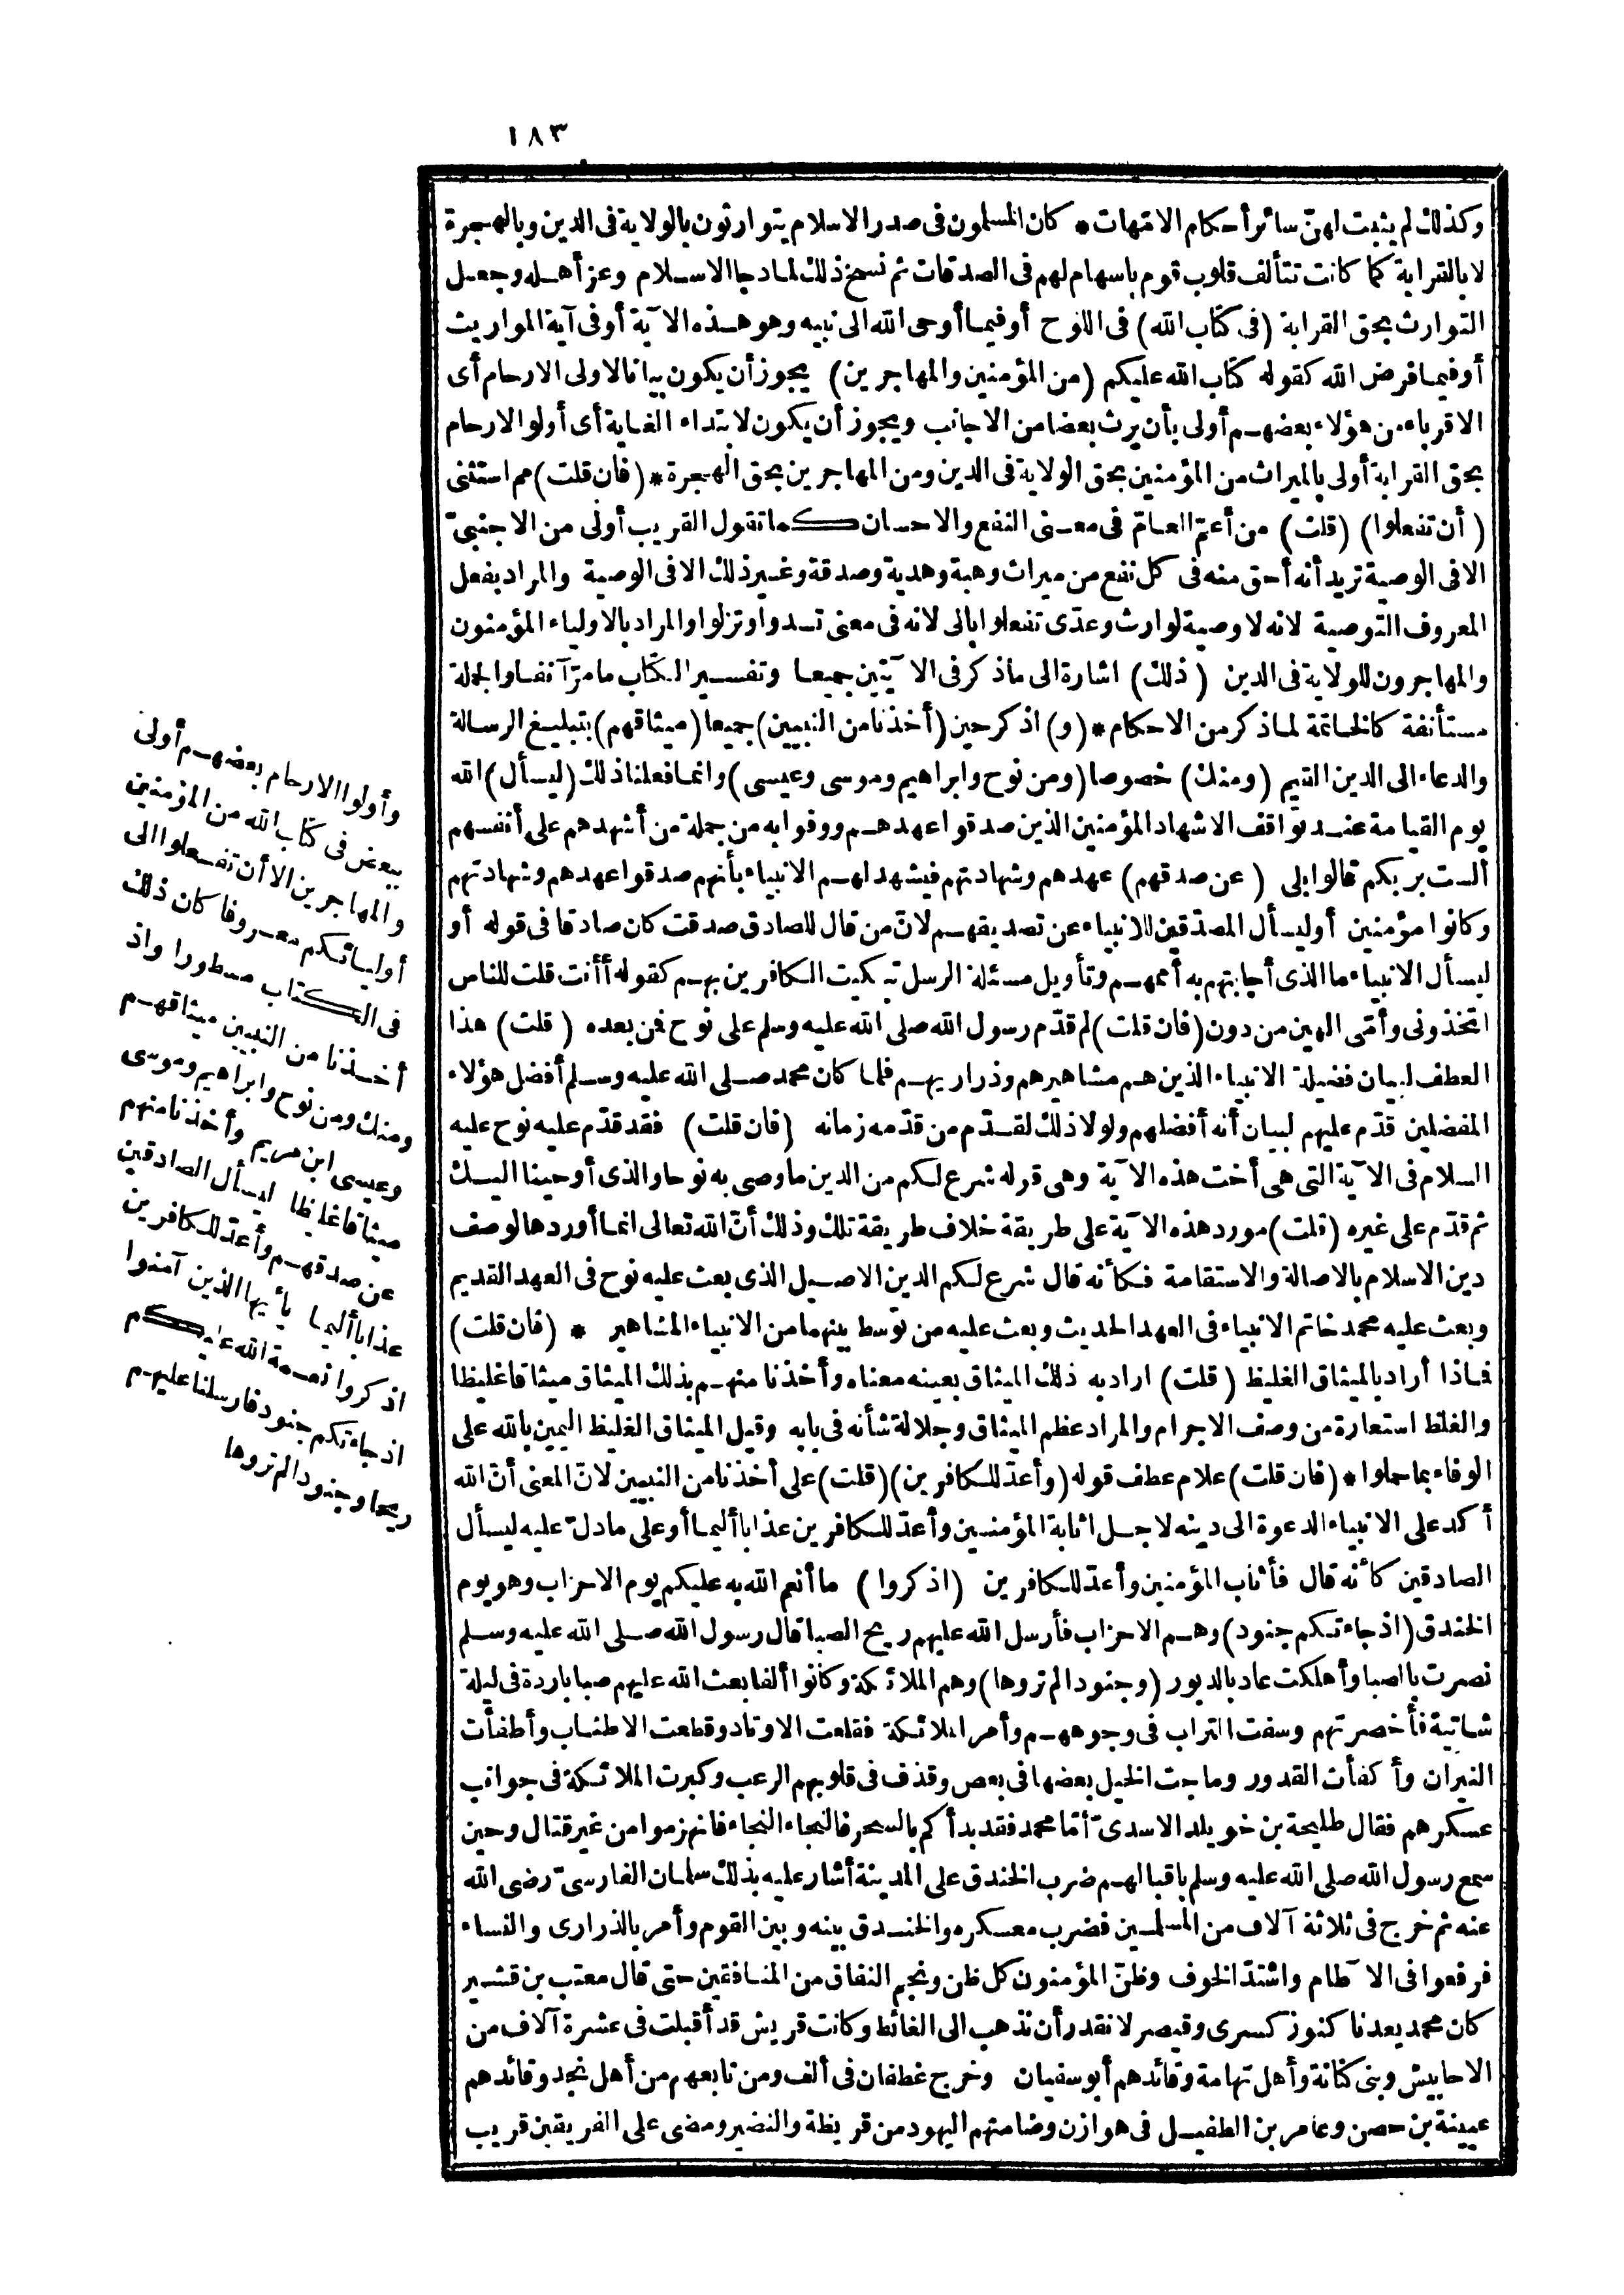 ١٨٣
وكذلك لم يثبت لهنّ سائر أحكام الامّهات * كان المسلمون فى صدر الاسلام يتوارثون بالولاية فى الدين وبالهجرة
لا بالقرابة كما كانت تتألف قلوب قوم باسهام لهم فى الصدقات ثم نسخ ذلك لما دجا الاسلام وعز أهله وجعل
التوارث بحق القرابة (فى كتاب الله) فى اللوح أو فيما أوحى الله الى نبيه وهو هذه الآية أو فى آية المواريث
أو فيما فرض الله كقوله كتاب الله عليكم (من المؤمنين والمهاجرين) يجوز أن يكون بيانا لاولى الارحام أى
الاقرباء من هؤلاء بعضهم أولى بأن يرث بعضا من الاجانب ويجوز أن يكون لابتداء الغاية أى أولو الارحام
بحق القرابة أولى بالميراث من المؤمنين بحق الولاية فى الدين ومن المهاجرين بحق الهجرة * (فان قلت) مم استثنى
(أن تفعلوا) (قلت) من أعمّ العامّ فى معنى النفع والاحسان كما تقول القريب أولى من الاجنبىّ
الا فى الوصية تريد أنه أحق منه فى كل نفع من ميراث وهبة وهدية وصدقة وغير ذلك الا فى الوصية والمراد بفعل
المعروف التوصية لانه لا وصية لوارث وعدّى تفعلوا بالى لانه فى معنى تسدوا وتزلوا والمراد بالاولياء المؤمنون
والمهاجرون للولاية فى الدين (ذلك) اشارة الى ماذكر فى الآيتين جميعا وتفسير الكتاب ما مرّ آنفا والجملة
مستأنفة كالخاتمة لما ذكر من الاحكام * (و) اذكر حين (أخذنا من النبيين) جميعا (ميثاقهم) بتبليغ الرسالة
والدعاء الى الدين القيم (ومنك) خصوصا (ومن نوح وابراهيم وموسى وعيسى) وانما فعلنا ذلك (ليسأل) الله
يوم القيامة عند تواقف الاشهاد المؤمنين الذين صدقوا عهدهم ووفوا به من جملة من أشهدهم على أنفسهم
ألست بربكم قالوا بلى (عن صدقهم) عهدهم وشهادتهم فيشهد لهم الانبياء بأنهم صدقوا عهدهم وشهادتهم
وكانوا مؤمنين أو ليسأل المصدّقين للانبياء عن تصديقهم لانّ من قال للصادق صدقت كان صادقا فى قوله أو
ليسأل الانبياء ما الذى أجابتهم به أممهم وتأويل مسئلة الرسل تبكيت الكافرين بهم كقوله أأنت قلت للناس
اتخذونى وأمّى الهين من دون (فان قلت) لم قدّم رسول الله صلى الله عليه وسلم على نوح فمن بعده (قلت) هذا
العطف لبيان فضيلة الانبياء الذين هم مشاهيرهم وذراريهم فلما كان محمد صلى الله عليه وسلم أفضل هؤلاء
المفضلين قدّم عليهم لبيان أنه أفضلهم ولولا ذلك لقدّم من قدّمه زمانه (فان قلت) فقد قدّم عليه نوح عليه
السلام فى الآية التى هى أخت هذه الآية وهى قوله شرع لكم من الدين ما وصى به نوحا والذى أوحينا اليك
ثم قدّم على غيره (قلت) مورد هذه الآية على طريقة خلاف طريقة تلك وذلك أنّ الله تعالى انما أوردها لوصف
دين الاسلام بالاصالة والاستقامة فكأنه قال شرع لكم الدين الاصيل الذى بعث عليه نوح فى العهد القديم
وبعث عليه محمد خاتم الانبياء فى العهد الحديث وبعث عليه من توسط بينهما من الانبياء المشاهير * (فان قلت)
فماذا أراد بالميثاق الغليظ (قلت) اراد به ذلك الميثاق بعينه معناه وأخذنا منهم بذلك الميثاق ميثاقا غليظا
والغلظ استعارة من وصف الاجرام والمراد عظم الميثاق وجلالة شأنه فى بابه وقيل الميثاق الغليظ اليمين بالله على
الوفاء بما حملوا * (فان قلت) علام عطف قوله (وأعدّ للكافرين) (قلت) على أخذنا من النبيين لانّ المعنى أنّ الله
أكد على الانبياء الدعوة الى دينه لاجل اثابة المؤمنين وأعدّ للكافرين عذابا أليما أو على ما دلّ عليه ليسأل
الصادقين كأنه قال فأثاب المؤمنين وأعدّ للكافرين (اذكروا) ما أنعم الله به عليكم يوم الاحزاب وهو يوم
الخندق (اذ جاءتكم جنود) وهم الاحزاب فأرسل الله عليهم ريح الصبا قال رسول الله صلى الله عليه وسلم
نصرت بالصبا وأهلكت عاد بالدبور (وجنودا لم تروها) وهم الملائكة وكانوا ألفا بعث الله عليهم صبا باردة فى ليلة
شاتية فأخصرتهم وسفت التراب فى وجوههم وأمر الملائكة فقلعت الاوتاد وقطعت الاطناب وأطفأت
النيران وأكفأت القدور وماجت الخيل بعضها فى بعض وقذف فى قلوبهم الرعب وكبرت الملائكة فى جوانب
عسكرهم فقال طليحة بن خويلد الاسدىّ أمّا محمد فقد بدأكم بالسحر فالنجاء النجاء فانهزموا من غير قتال وحين
سمع رسول الله صلى الله عليه وسلم باقبالهم ضرب الخندق على المدينة أشار عليه بذلك سلمان الفارسىّ رضى الله
عنه ثم خرج فى ثلاثة آلاف من المسلمين فضرب معسكره والخندق بينه وبين القوم وأمر بالذرارى والنساء
فرفعوا فى الآطام واشتدّ الخوف وظنّ المؤمنون كل ظن ونجم النفاق من المنافقين حتى قال معتب بن قشير
كان محمد يعدنا كنوز كسرى وقيصر لا نقدر أن نذهب الى الغائط وكانت قريش قد أقبلت فى عشرة آلاف من
الاحابيش وبنى كنانة وأهل تهامة وقائدهم أبو سفيان وخرج غطفان فى ألف ومن تابعهم من أهل نجد وقائدهم
عيينة بن حصن وعامر بن الطفيل فى هوازن وضامتهم اليهود من قريظة والنضير ومضى على الفريقين قريب
وأولوا الارحام بعضهم أولى
ببعض فى كتاب الله من المؤمنين
والمهاجرين الا أن تفعلوا الى
أوليائكم معروفا كان ذلك
فى الكتاب مسطورا واذ
أخذنا من النبيين ميثاقهم
ومنك ومن نوح وابراهيم وموسى
وعيسى ابن مريم وأخذنا منهم
ميثاقا غليظا ليسأل الصادقين
عن صدقهم وأعدّ للكافرين
عذابا أليما يأيها الذين آمنوا
اذكروا نعمة الله عليكم
اذ جاءتكم جنود فارسلنا عليهم
ريحا وجنودا لم تروها